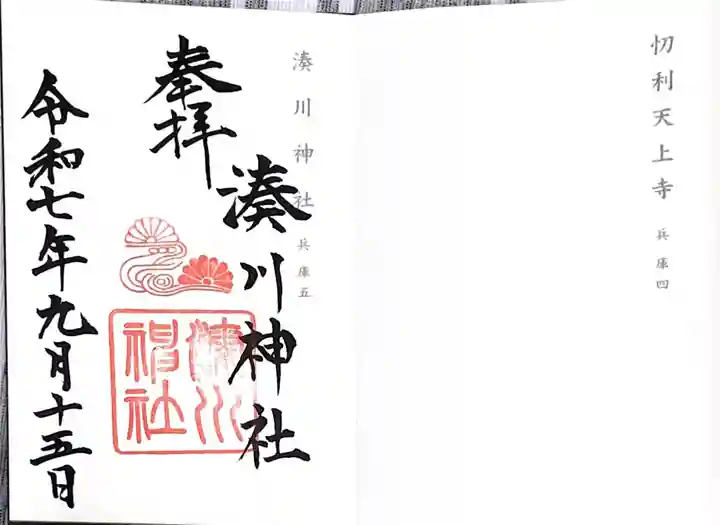 忉利天上寺 兵庫四
湊川神社 兵庫五
奉拝
湊川神社
湊川
神社
令和七年九月十五日